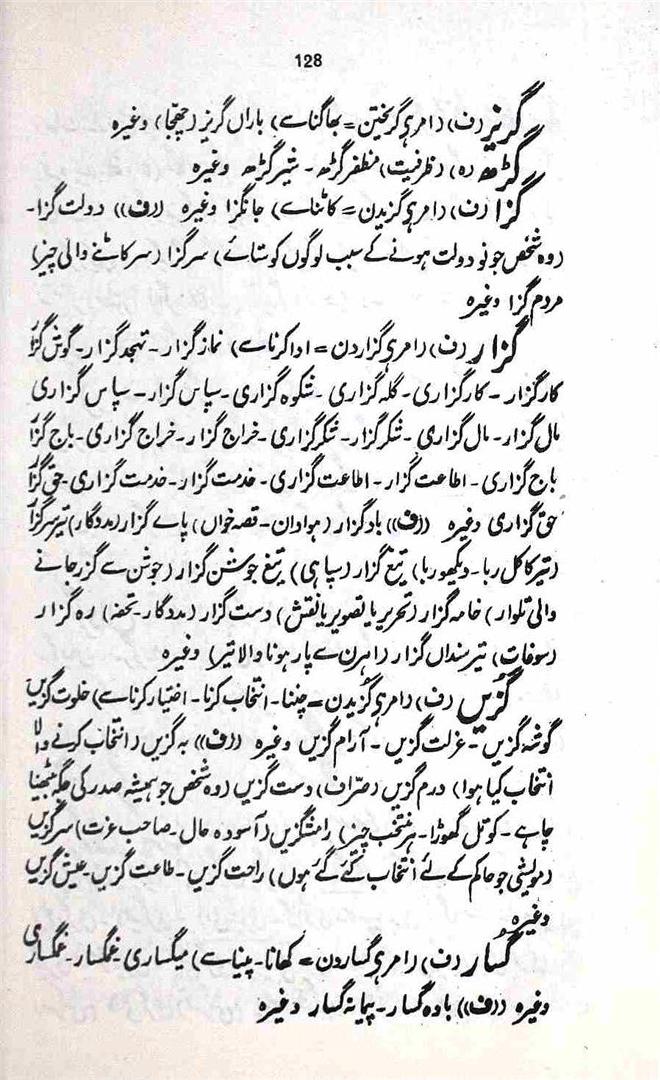 128
گریز (ف) (امر ہے گریختن = بھاگنا سے) باراں گریز (چھجّا) وغیرہ
گڑھ (ہ) (ظرفیت) مظفر گڑھ ۔ شیر گڑھ وغیرہ
گزا (ف) (امر ہے گزیدن = کاٹنا سے) جانگزا وغیرہ ((ف)) دولت گزا۔
(وہ شخص جو نو دولت ہونے کے سبب لوگوں کو ستائے) سر گزا (سر کاٹنے والی چیز)
مردم گزا وغیرہ
گزار (ف) (امر ہے گزاردن = ادا کرنا سے) نماز گزار ۔ تہجد گزار ۔ گوش گزار
کار گزار ۔ کار گزاری ۔ گلہ گزاری ۔ شکوہ گزاری ۔ سپاس گزار ۔ سپاس گزاری
مال گزار ۔ مال گزاری ۔ شکر گزار ۔ شکر گزاری ۔ خراج گزار ۔ خراج گزاری ۔ باج گزار
باج گزاری ۔ اطاعت گزار ۔ اطاعت گزاری ۔ خدمت گزار ۔ خدمت گزاری ۔ حق گزار
حق گزاری وغیرہ ((ف)) باد گزار (ہوادان ۔ قصہ خواں) پائے گزار (مددگار) تیر سر گزار
(تیر کا کل ربا ۔ دیکھو ربا) تیغ گزار (سپاہی) تیغ جوشن گزار (جوشن سے گزر جانے
والی تلوار) خامہ گزار (تحریر یا تصویر یا نقش) دست گزار (مددگار ۔ تحفہ) رہ گزار
(سوغات) تیر سنداں گزار (اہرن سے پار ہونا والا تیر) وغیرہ
گزیں (ف) (امر ہے گزیدن = چننا ۔ انتخاب کرنا ۔ اختیار کرنا سے) خلوت گزیں
گوشہ گزیں ۔ عزلت گزیں ۔ آرام گزیں وغیرہ ((ف)) بہ گزیں (انتخاب کرنے والا
انتخاب کیا ہوا) درم گزیں (صرّاف) دست گزیں (وہ شخص جو ہمیشہ صدر کی جگہ بیٹھنا
چاہے ۔ کوتل گھوڑا ۔ ہر منتخب چیز) رامشگزیں (آسودہ حال ۔ صاحب عزت) سر گزیں
(مویشی جو حاکم کے لئے انتخاب کئے گئے ہوں) راحت گزیں ۔ طاعت گزیں ۔ عیش گزیں
وغیرہ
گسار (ف) (امر ہے گساردن = کھانا ۔ پینا سے) میگساری ۔ غمگسار ۔ غمگساری
وغیرہ ((ف)) بادہ گسار ۔ پیمانہ گسار وغیرہ